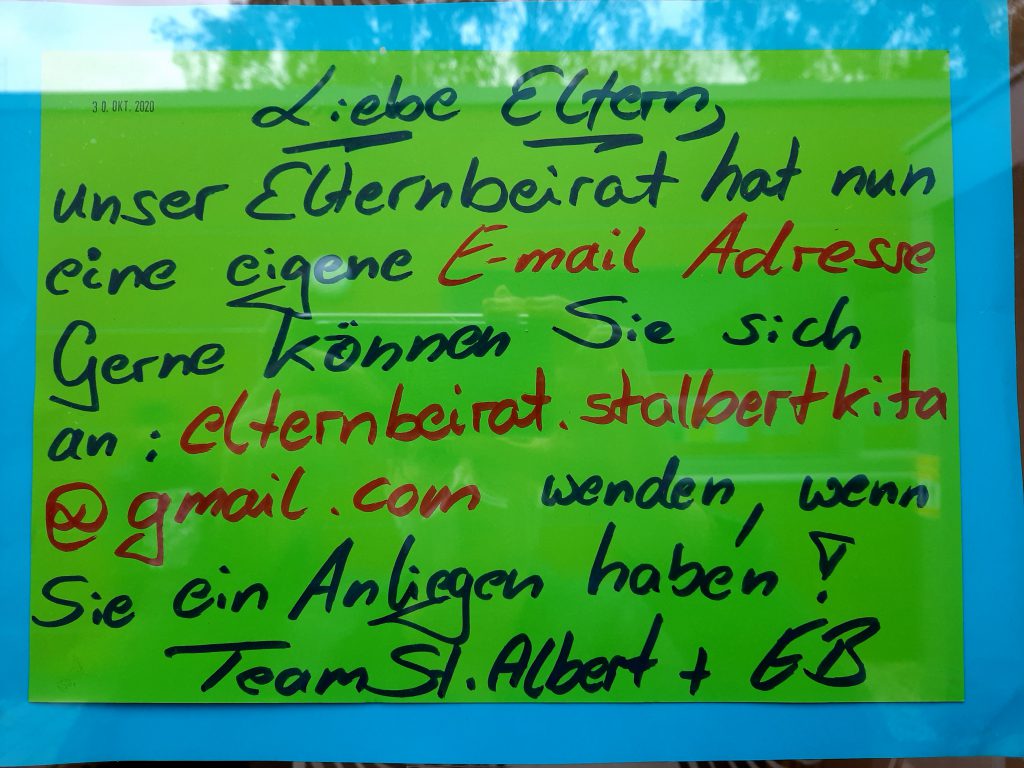 30. OKT. 2020
Liebe Eltern,
unser Elternbeirat hat nun
eine eigene E-mail Adresse
Gerne können Sie sich
an: elternbeirat.stalbertkita
@gmail.com wenden, wenn
Sie ein Anliegen haben!
Team St. Albert + EB